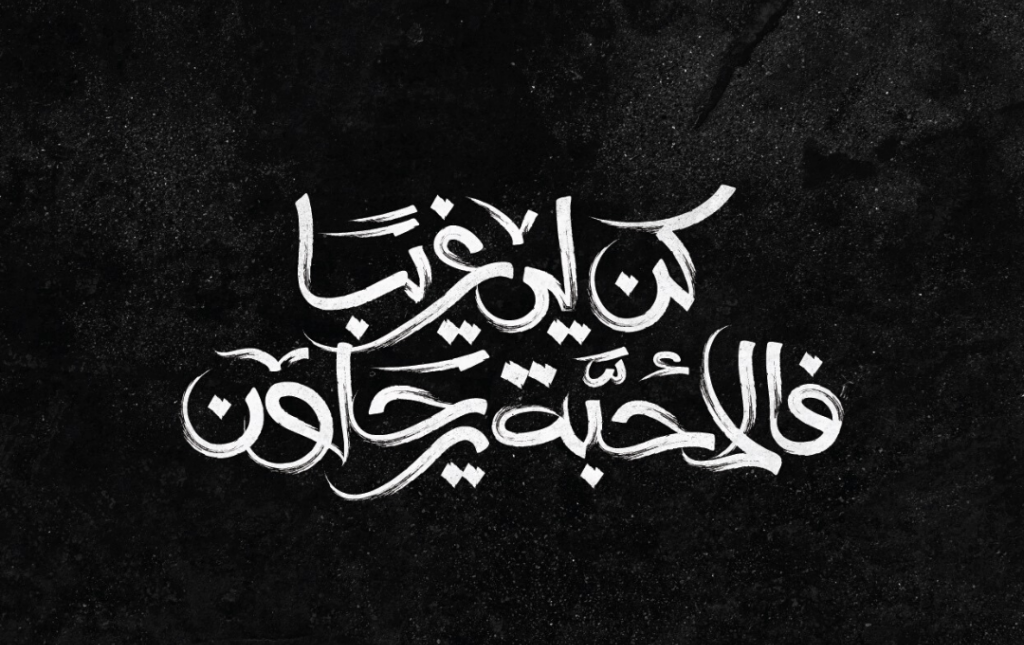 كن لي غريبًا
فالأحبَّة يرحلون